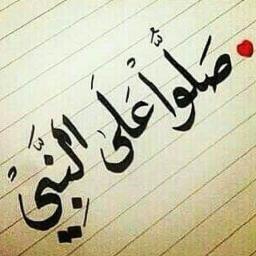 صَلُّوا عَلَى النَّبِيِّ